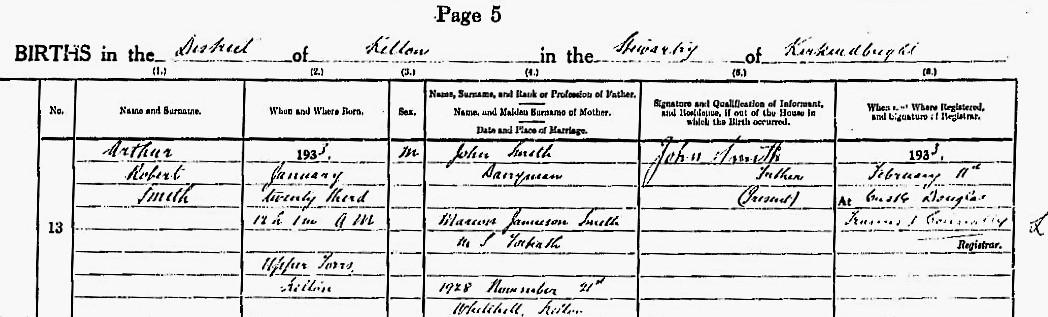 Page 5
BIRTHS in the District of Kelton in the Stewartry of Kirkcudbright
(1.) (2.) (3.) (4.) (5.) (6.)
No. Name and Surname. When and Where Born. Sex. Name, Surname, and Rank or Profession of Father. Name, and Maiden Surname of Mother. Date and Place of Marriage. Signature and Qualification of Informant, and Residence, if out of the House in which the Birth occurred. When and Where Registered, and Signature of Registrar.
Arthur 1933. M John Smith John Smith 1933.
Robert January Dairyman Father February 11th
Smith twenty third (Present) At Castle Douglas
13 12 h 1 m A M Smith Connolly
M S Registrar.
Upper Torrs
Kelton 1928 November 21st
Whitehill, Kelton